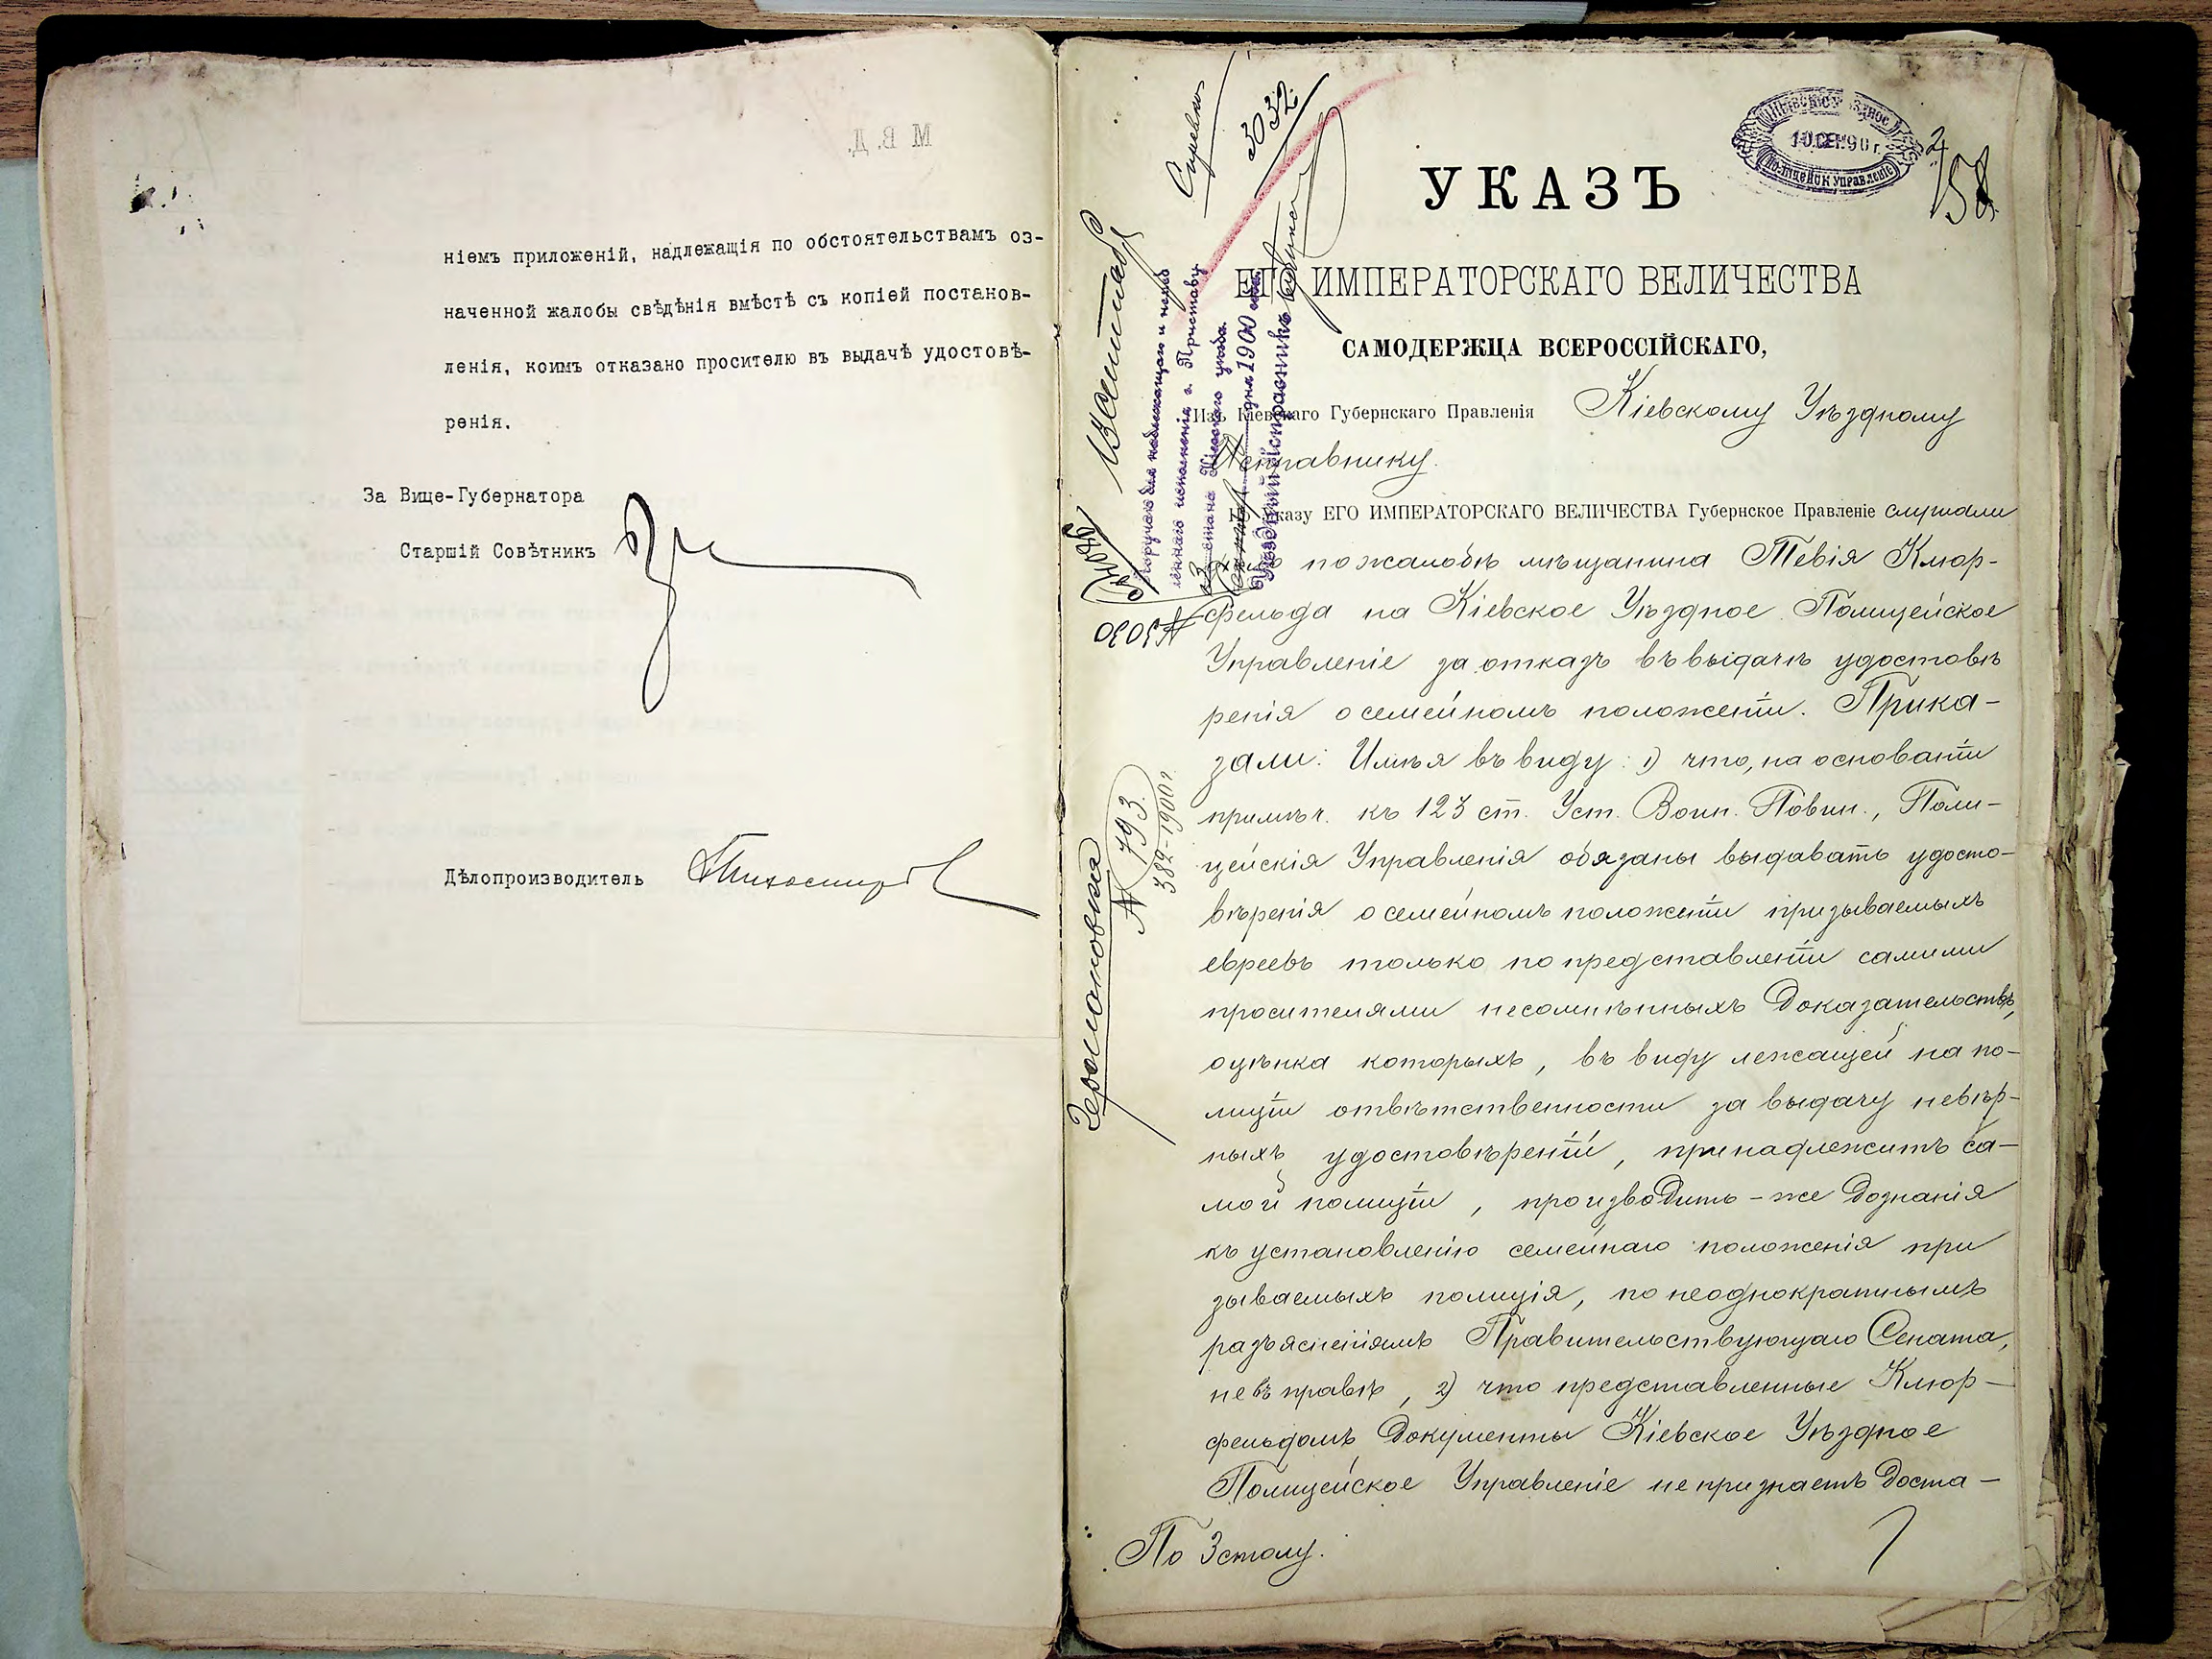 М В. Д.
ніемъ приложеній, надлежащія по обстоятельствамъ оз-
наченной жалобы свѣдѣнія вмѣстѣ съ копіей постанов-
ленія, коимъ отказано просителю въ выдачѣ удостовѣ-
ренія.
За Вице-Губернатора
Старшій Совѣтникъ
Дѣлопроизводитель
3032
10 СЕН. 90 г.
Полицейск управленіе
2
158
УКАЗЪ
ЕГО ИМПЕРАТОРСКАГО ВЕЛИЧЕСТВА
САМОДЕРЖЦА ВСЕРОССІЙСКАГО,
Изъ Кіевскаго Губернскаго Правленія Кіевскому Уѣздному
Исправнику.
По Указу ЕГО ИМПЕРАТОРСКАГО ВЕЛИЧЕСТВА Губернское Правленіе слушали
по жалобѣ мѣщанина Тевія Клюр-
фельда на Кіевское Уѣздное Полицейское
Управленіе за отказъ въ выдачѣ удостовѣ
ренія о семейномъ положеніи. Прика-
зали: Имѣя въ виду: 1) что, на основаніи
примѣч. къ 123 ст. Уст. Воин. Повин., Поли-
цейскія Управленія обязаны выдавать удосто-
вѣренія о семейномъ положеніи призываемыхъ
евреевъ только по представленіи самими
просителями несомнѣнныхъ доказательствъ,
оцѣнка которыхъ, въ виду лежащей на по-
лиціи отвѣтственности за выдачу невѣр-
ныхъ удостовѣреній, принадлежитъ са-
мой полиціи, производить-же дознанія
къ установленію семейнаго положенія при
зываемыхъ полиція, по неоднократнымъ
разъясненіямъ Правительствующаго Сената,
не въ правѣ, 2) что представленные Клюр-
фельдомъ документы Кіевское Уѣздное
Полицейское Управленіе не признаетъ доста-
По 3 столу.
Поручаю для надлежащаго и
исполненія г. Приставу
3 стана Кіевскаго уѣзда.
дня 1900 года
Уѣздный Исправникъ
№ 3030
№ 793
382-1900 г.